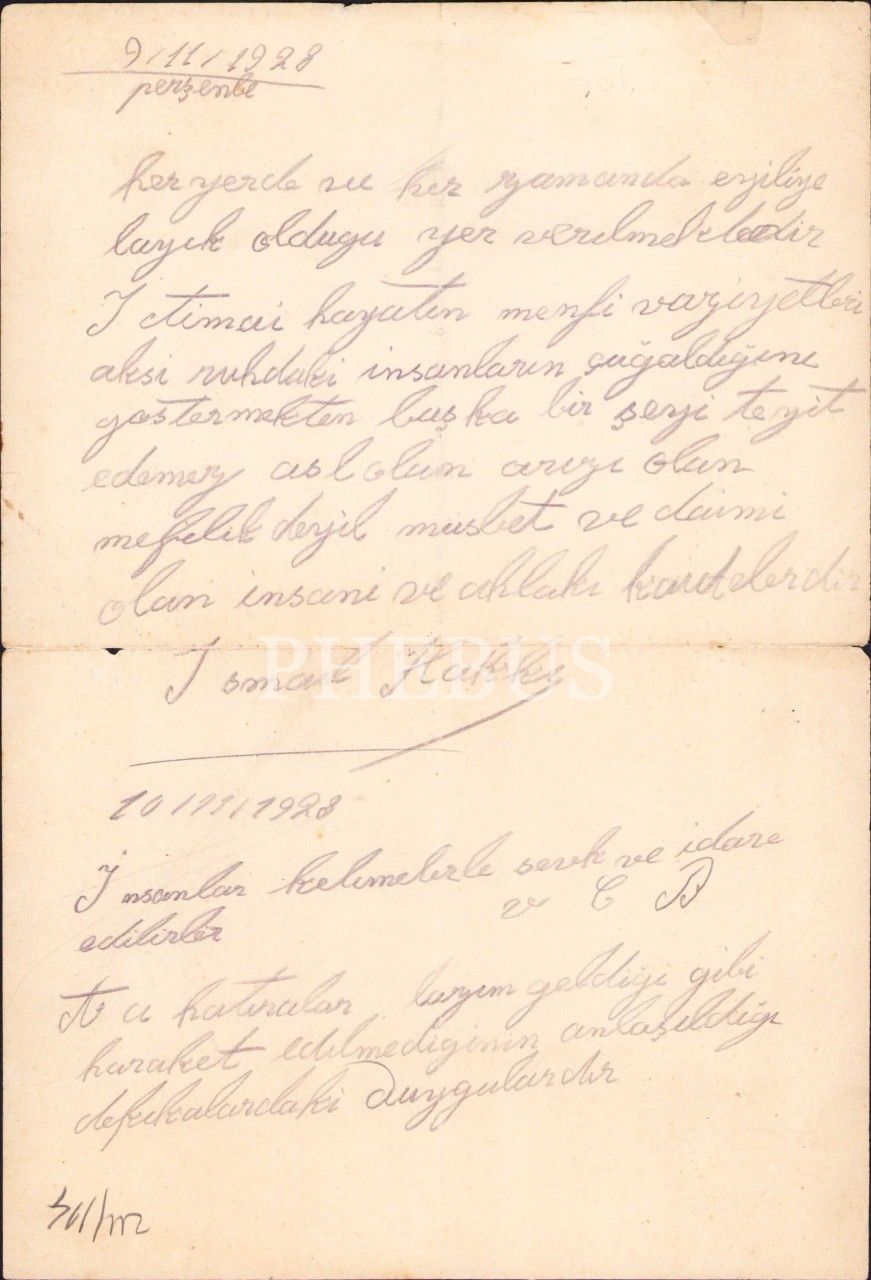 9/11/1928
perşenbe
her yerde ve her zamanda eyiliye
layık oldugu yer verilmektedir
Ictimai hayatın menfi vaziyetleri
aksi ruhdaki insanların çuğaldığını
gostermekten başka bir şeyi teyit
edemez asl olan arızi olan
mefilik deyil musbet ve daimi
olan insani ve ahlaki
Ismail Hakkı
PHEBUS
10/11/1928
İnsanlar kelimelerle sevk ve idare
edilirler
v C B
Acı hatıralar lazım geldiği gibi
haraket edilmediginin anlaşıldığı
dekikalardaki Duygulardır